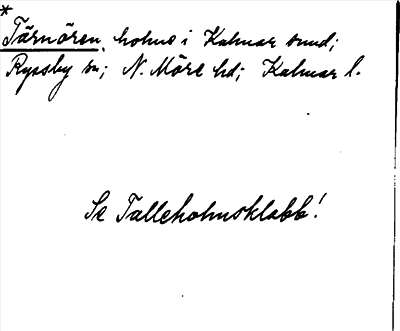 *
Tärnören, holme i Kalmar sund;
Ryssby sn; N. Möre hd; Kalmar l.
Se Talleholmsklabb!